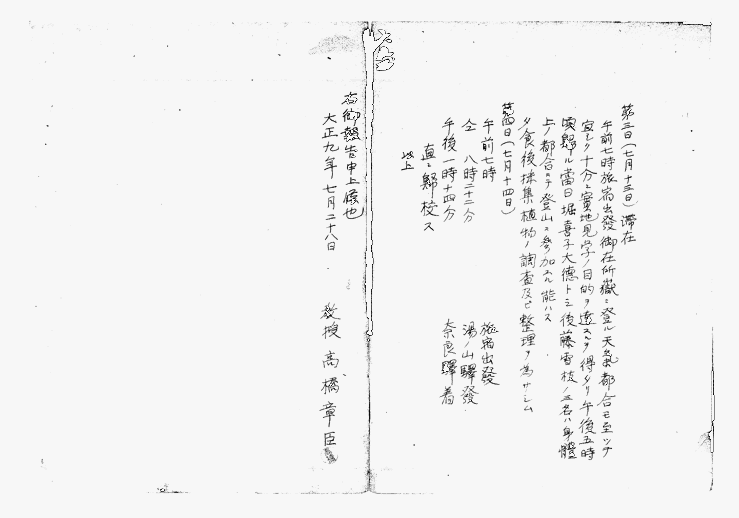 第三日(七月十三日)滞在
午前七時旅宿出發御在所嶽ニ登ル天氣都合モ至ツテ
宜シク十分ニ實地見学ノ目的ヲ達スルヲ得タリ午後五時
頃歸ル當日堀喜子大德トミ後藤雪枝ノ三名ハ身體
上ノ都合ニテ登山ニ參加スル能ハス
夕食後採集植物ノ調査及ビ整理ヲ為サシム
第四日(七月十四日)
午前七時 旅宿出發
仝 八時二十二分 湯ノ山驛發
午後一時十四分 奈良驛着
直ニ歸校ス
以上
右御報告申上候也
大正九年七月二十八日
教授 高橋章臣